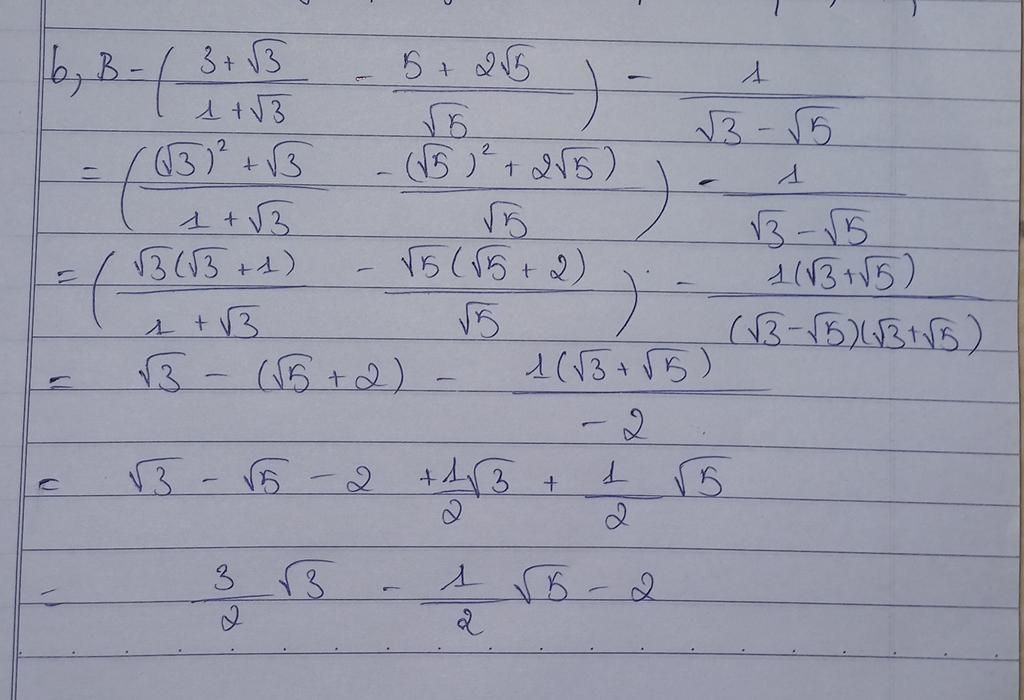 b, B = ( (3 + √3)/(1 + √3) - (5 + 2√5)/√5 ) - 1/(√3 - √5)
= ( ((√3)² + √3)/(1 + √3) - ((√5)² + 2√5)/√5 ) - 1/(√3 - √5)
= ( √3(√3 + 1)/(1 + √3) - √5(√5 + 2)/√5 ) - 1(√3 + √5)/((√3 - √5)(√3 + √5))
= √3 - (√5 + 2) - 1(√3 + √5)/(-2)
= √3 - √5 - 2 + 1/2 √3 + 1/2 √5
= 3/2 √3 - 1/2 √5 - 2